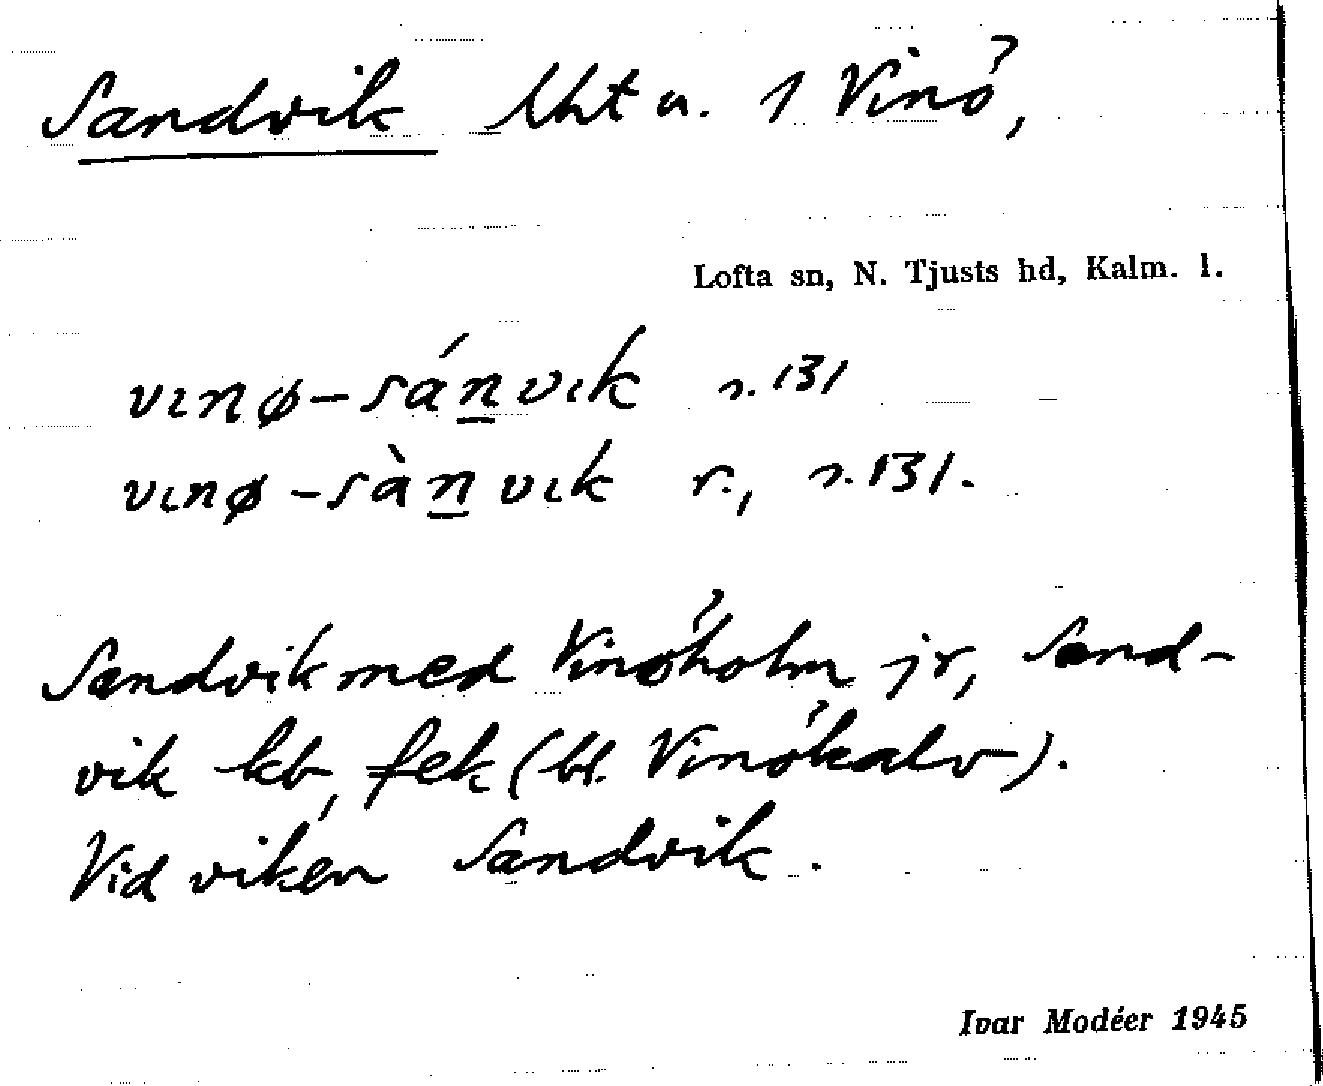 Sandvik lht u. 1 Vinö,
Lofta sn, N. Tjusts hd, Kalm. l.
vınø-sánvık s. 131
vınø-sànvık r., s. 131.
Sandvik med Vinöholm jr, Sand-
vik kb, fek (bl. Vinökalv).
Vid viken Sandvik.
Ivar Modéer 1945